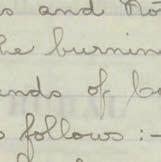 s and No
he burnin
nds of b
s follows :-